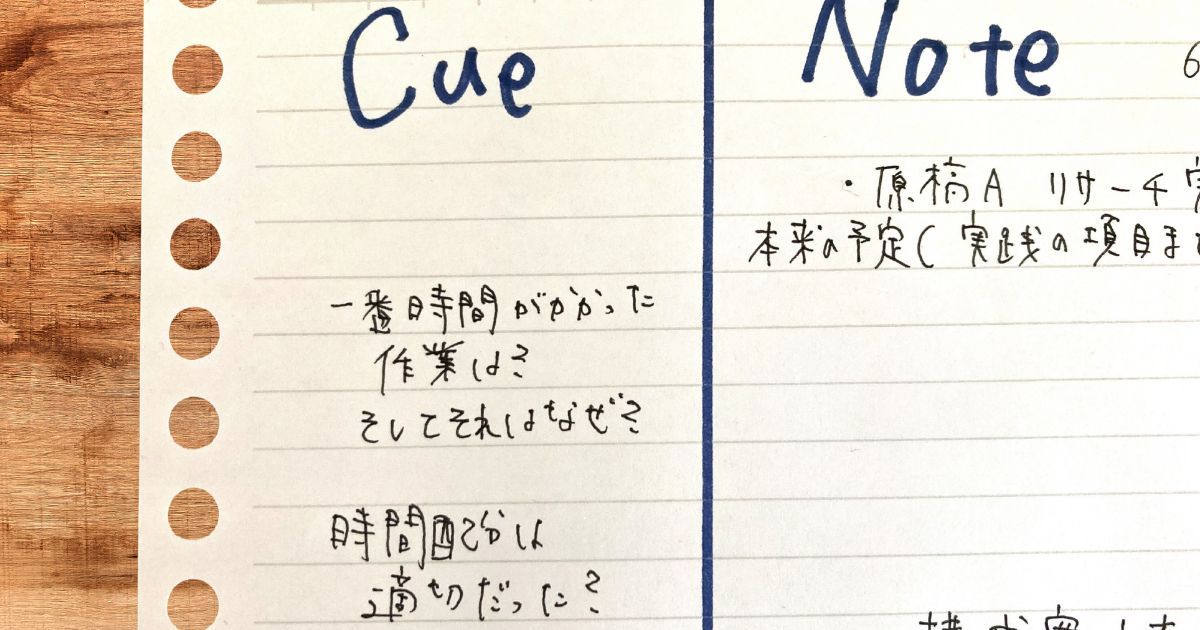 Cue
一番時間がかかった
作業は?
そしてそれはなぜ?
時間配分は
適切だった?
Note
6
・原稿A リサーチ実
本来の予定(実践の項目ま
構成案